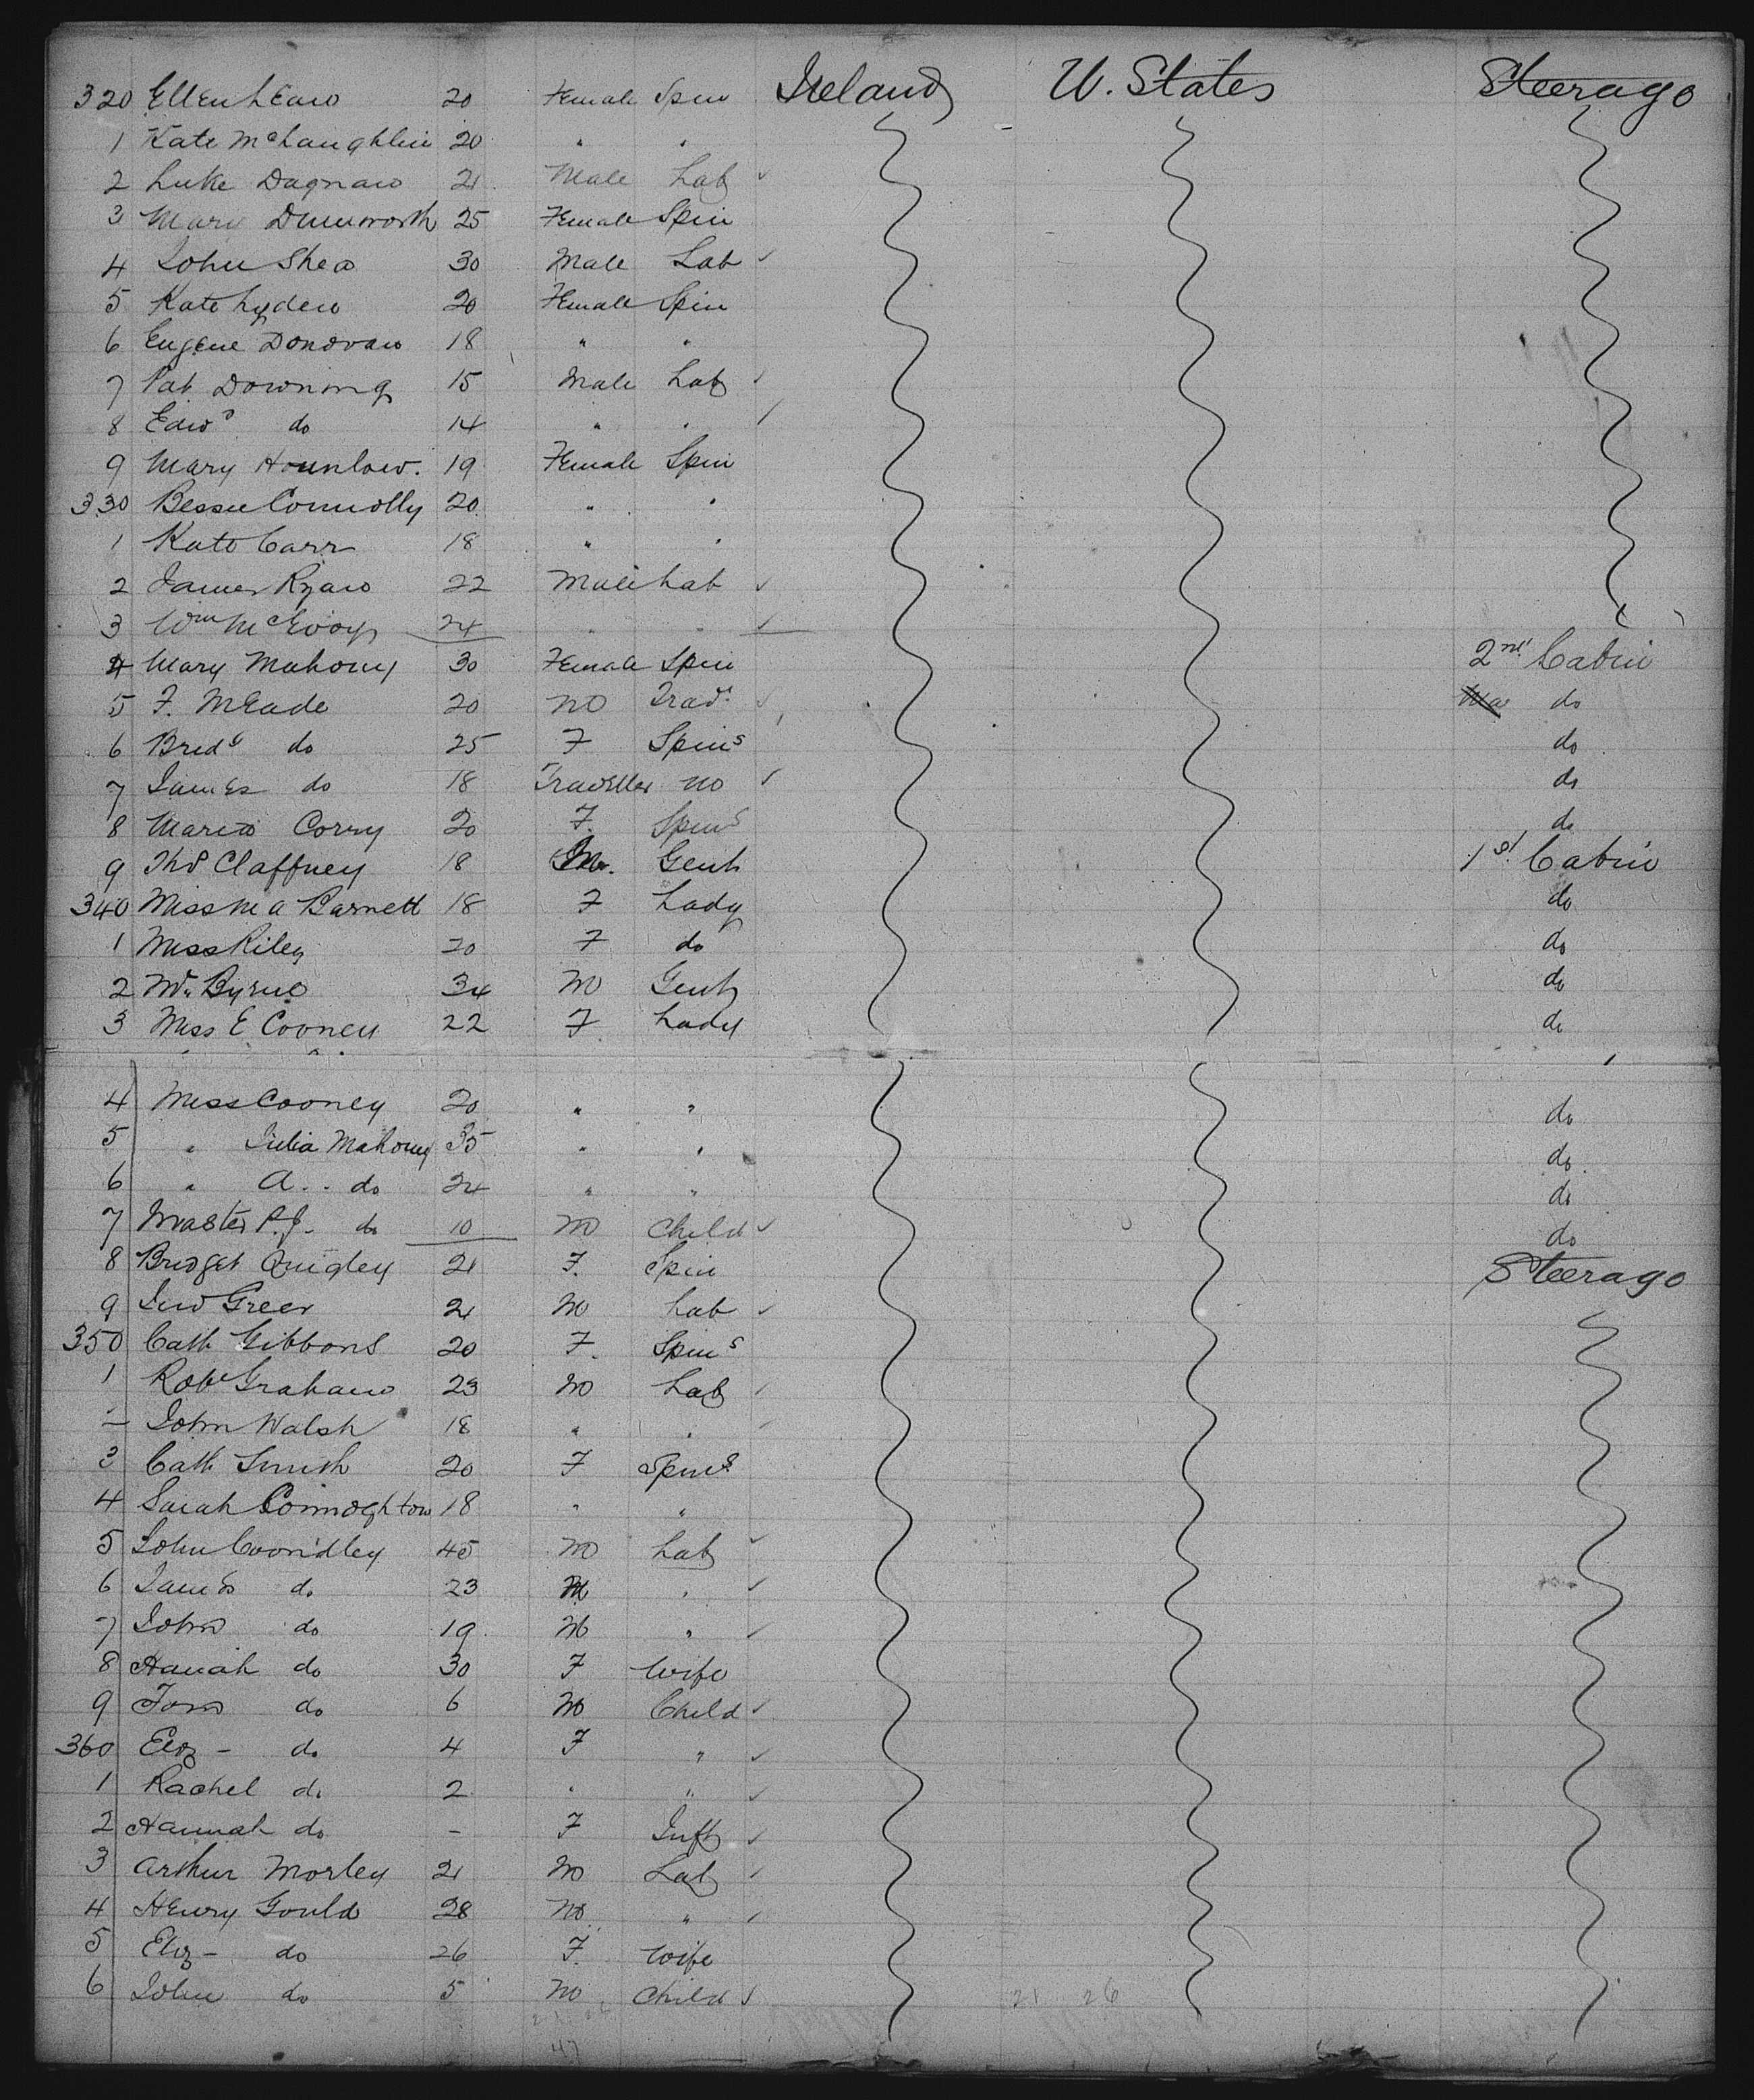 320 Ellen Lean 20 Female Spin Ireland U. States Steerage
1 Kate McLaughlin 20 " "
2 Luke Dagnan 21 Male Lab ✓
3 Mary Dunworth 25 Female Spin
4 John Shea 30 Male Lab ✓
5 Kate Lyden 20 Female Spin
6 Eugene Donovan 18 " "
7 Pat Downing 15 Male Lab ✓
8 Edwd do 14 " " ✓
9 Mary Hounlow. 19 Female Spin
330 Bessie Connolly 20 " "
1 Kate Carr 18 " "
2 James Ryan 22 Male Lab ✓
3 Wm McEvoy 24 " " ✓
4 Mary Mahony 30 Female Spin 2nd Cabin
5 F. Meade 20 M Trav. ✓ do
6 Bridt do 25 F Spins do
7 James do 18 Traveller M ✓ do
8 Maria Corry 20 F. Spins do
9 Thos Claffney 18 M. Gent 1st Cabin
340 Miss M A Barnett 18 F Lady do
1 Miss Riley 20 F do do
2 Mr. Byrne 34 M Gent do
3 Miss E Cooney 22 F Lady do
4 Miss Cooney 20 " " do
5 " Julia Mahony 35 " " do
6 " A. . do 24 " " do
7 Master P.J. do 10 M Child ✓ do
8 Bridget Quigley 21 F. Spin Steerage
9 Jno Greer 21 M Lab ✓
350 Cath Gibbons 20 F. Spins
1 Robt Graham 23 M Lab ✓
– John Walsh 18 " " ✓
3 Cath Smith 20 F Spins
4 Sarah Connoghton 18 " "
5 John Coondley 45 M Lab ✓
6 James do 23 M " ✓
7 John do 19 M " ✓
8 Hanah do 30 F Wife
9 Tom do 6 M Child ✓
360 Eliz – do 4 F " ✓
1 Rachel do 2 " " ✓
2 Hannah do – F Inft ✓
3 Arthur Morley 21 M Lab ✓
4 Henry Gould 28 M " ✓
5 Eliz – do 26 F. Wife
6 John do 5 M Child ✓
21 26
47